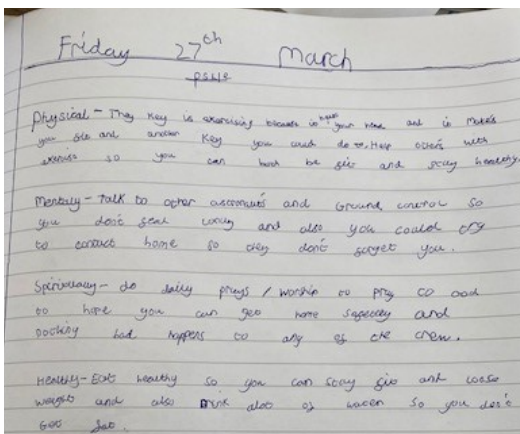 Friday 27th March
PSHE
Physical - They Key is exercising because in your and in makes
you and another Key you could do is. Help others with
exercise so you can both be fit and stay healthy.
Mentally - Talk to other astronauts and Ground control so
you don't feel and also you could try
to contact home so they don't forget you.
Spiritually - do daily prays / worship to pray to God
to hope you can get home and
had happens to any of the crew.
Healthy - Eat healthy so you can stay fit and loose
weight and also drink alot of water so you don't
Get fat.